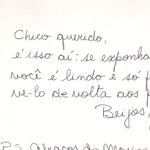 Chico querido,
é isso aí: se exponha
você é lindo e só f
vê-lo de volta aos p
Beijos,
P.S. Abraços do